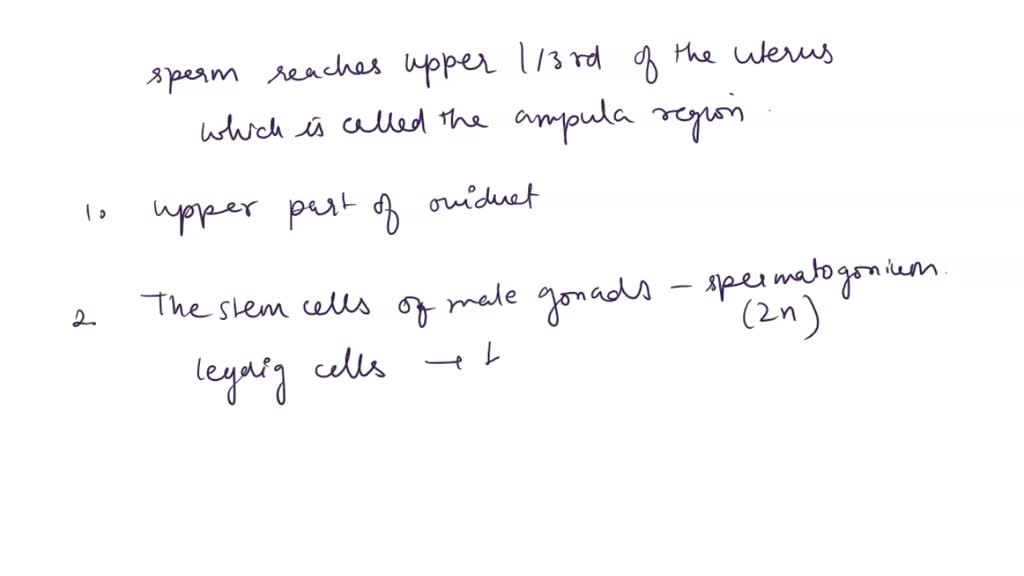 sperm reaches upper 1/3rd of the uterus
which is called the ampula region.
1. upper part of oviduct
2. The stem cells of male gonads - spermatogonium.
(2n)
leydig cells → t